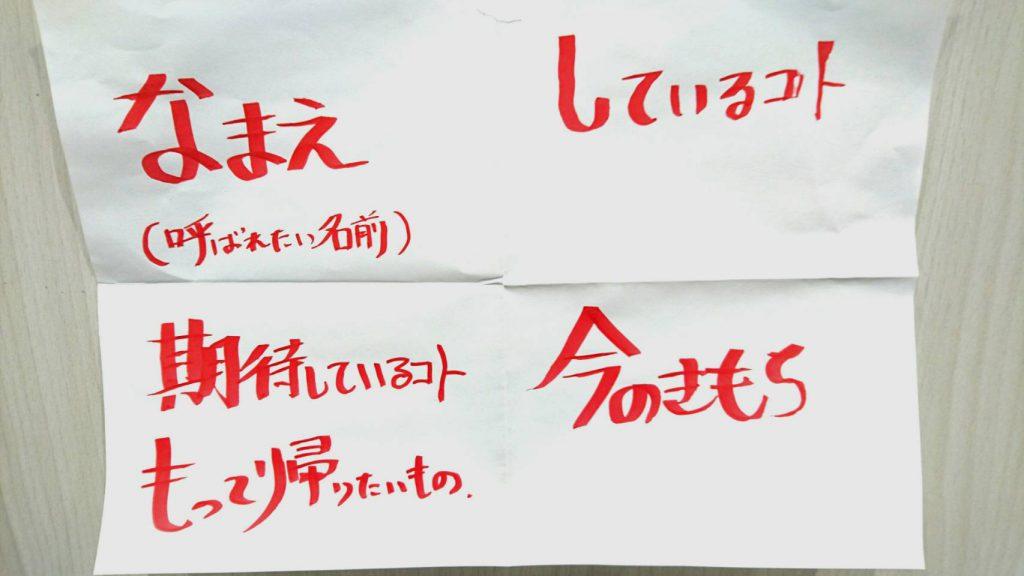 なまえ
(呼ばれたい名前)
しているコト
期待しているコト
もって帰りたいもの.
今のきもち